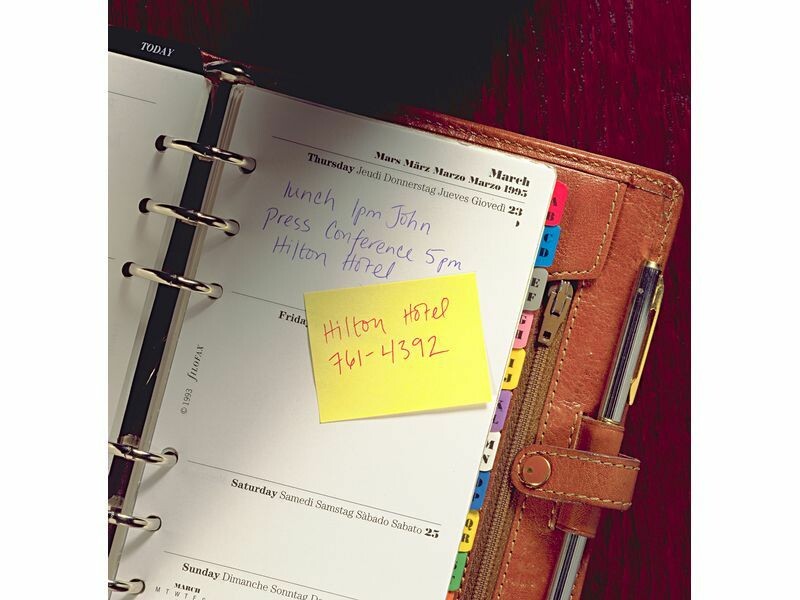 TODAY
March
Mars März Marzo Marzo 1995
Thursday Jeudi Donnerstag Jueves Giovedì 23
lunch 1pm John
press Conference 5pm
Hilton Hotel
Friday
Hilton Hotel
761-4392
© 1993 FILOFAX
Saturday Samedi Samstag Sàbado Sabato 25
Sunday Dimanche Sonntag
MARCH
M T W T F
A B
C D
E F
G H
I J
K L
M N
O P
Q R